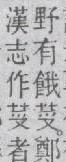 野有餓。鄭
漢志作者